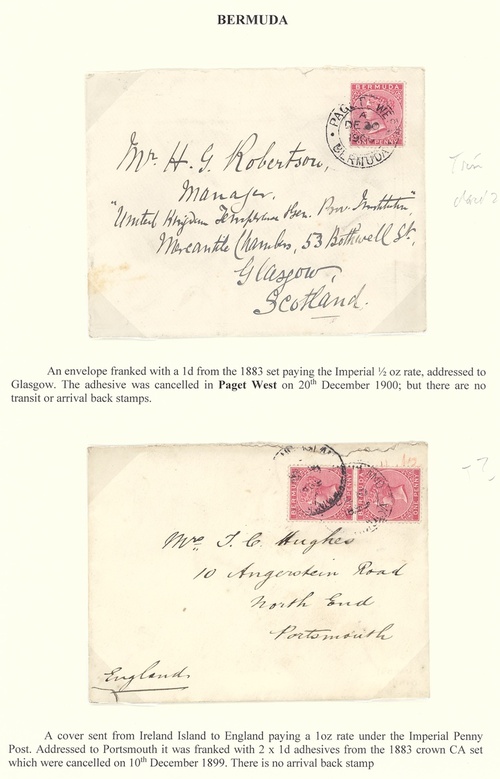 BERMUDA
BERMUDA
PAGET WE
A
DE 20
BERMUDA
ONE PENNY
Mr. H. G. Robertson,
Manager,
"United Kingdom Temperance & Gen. Prov. Institution",
Mercantile Chambers, 53 Bothwell St.,
Glasgow,
Scotland.
An envelope franked with a 1d from the 1883 set paying the Imperial ½ oz rate, addressed to
Glasgow. The adhesive was cancelled in Paget West on 20th December 1900; but there are no
transit or arrival back stamps.
BERMUDA
ONE PENNY
BERMUDA
ONE PENNY
Mrs J. C. Hughes
10 Angerstein Road
North End
Portsmouth
England
A cover sent from Ireland Island to England paying a 1oz rate under the Imperial Penny
Post. Addressed to Portsmouth it was franked with 2 x 1d adhesives from the 1883 crown CA set
which were cancelled on 10th December 1899. There is no arrival back stamp